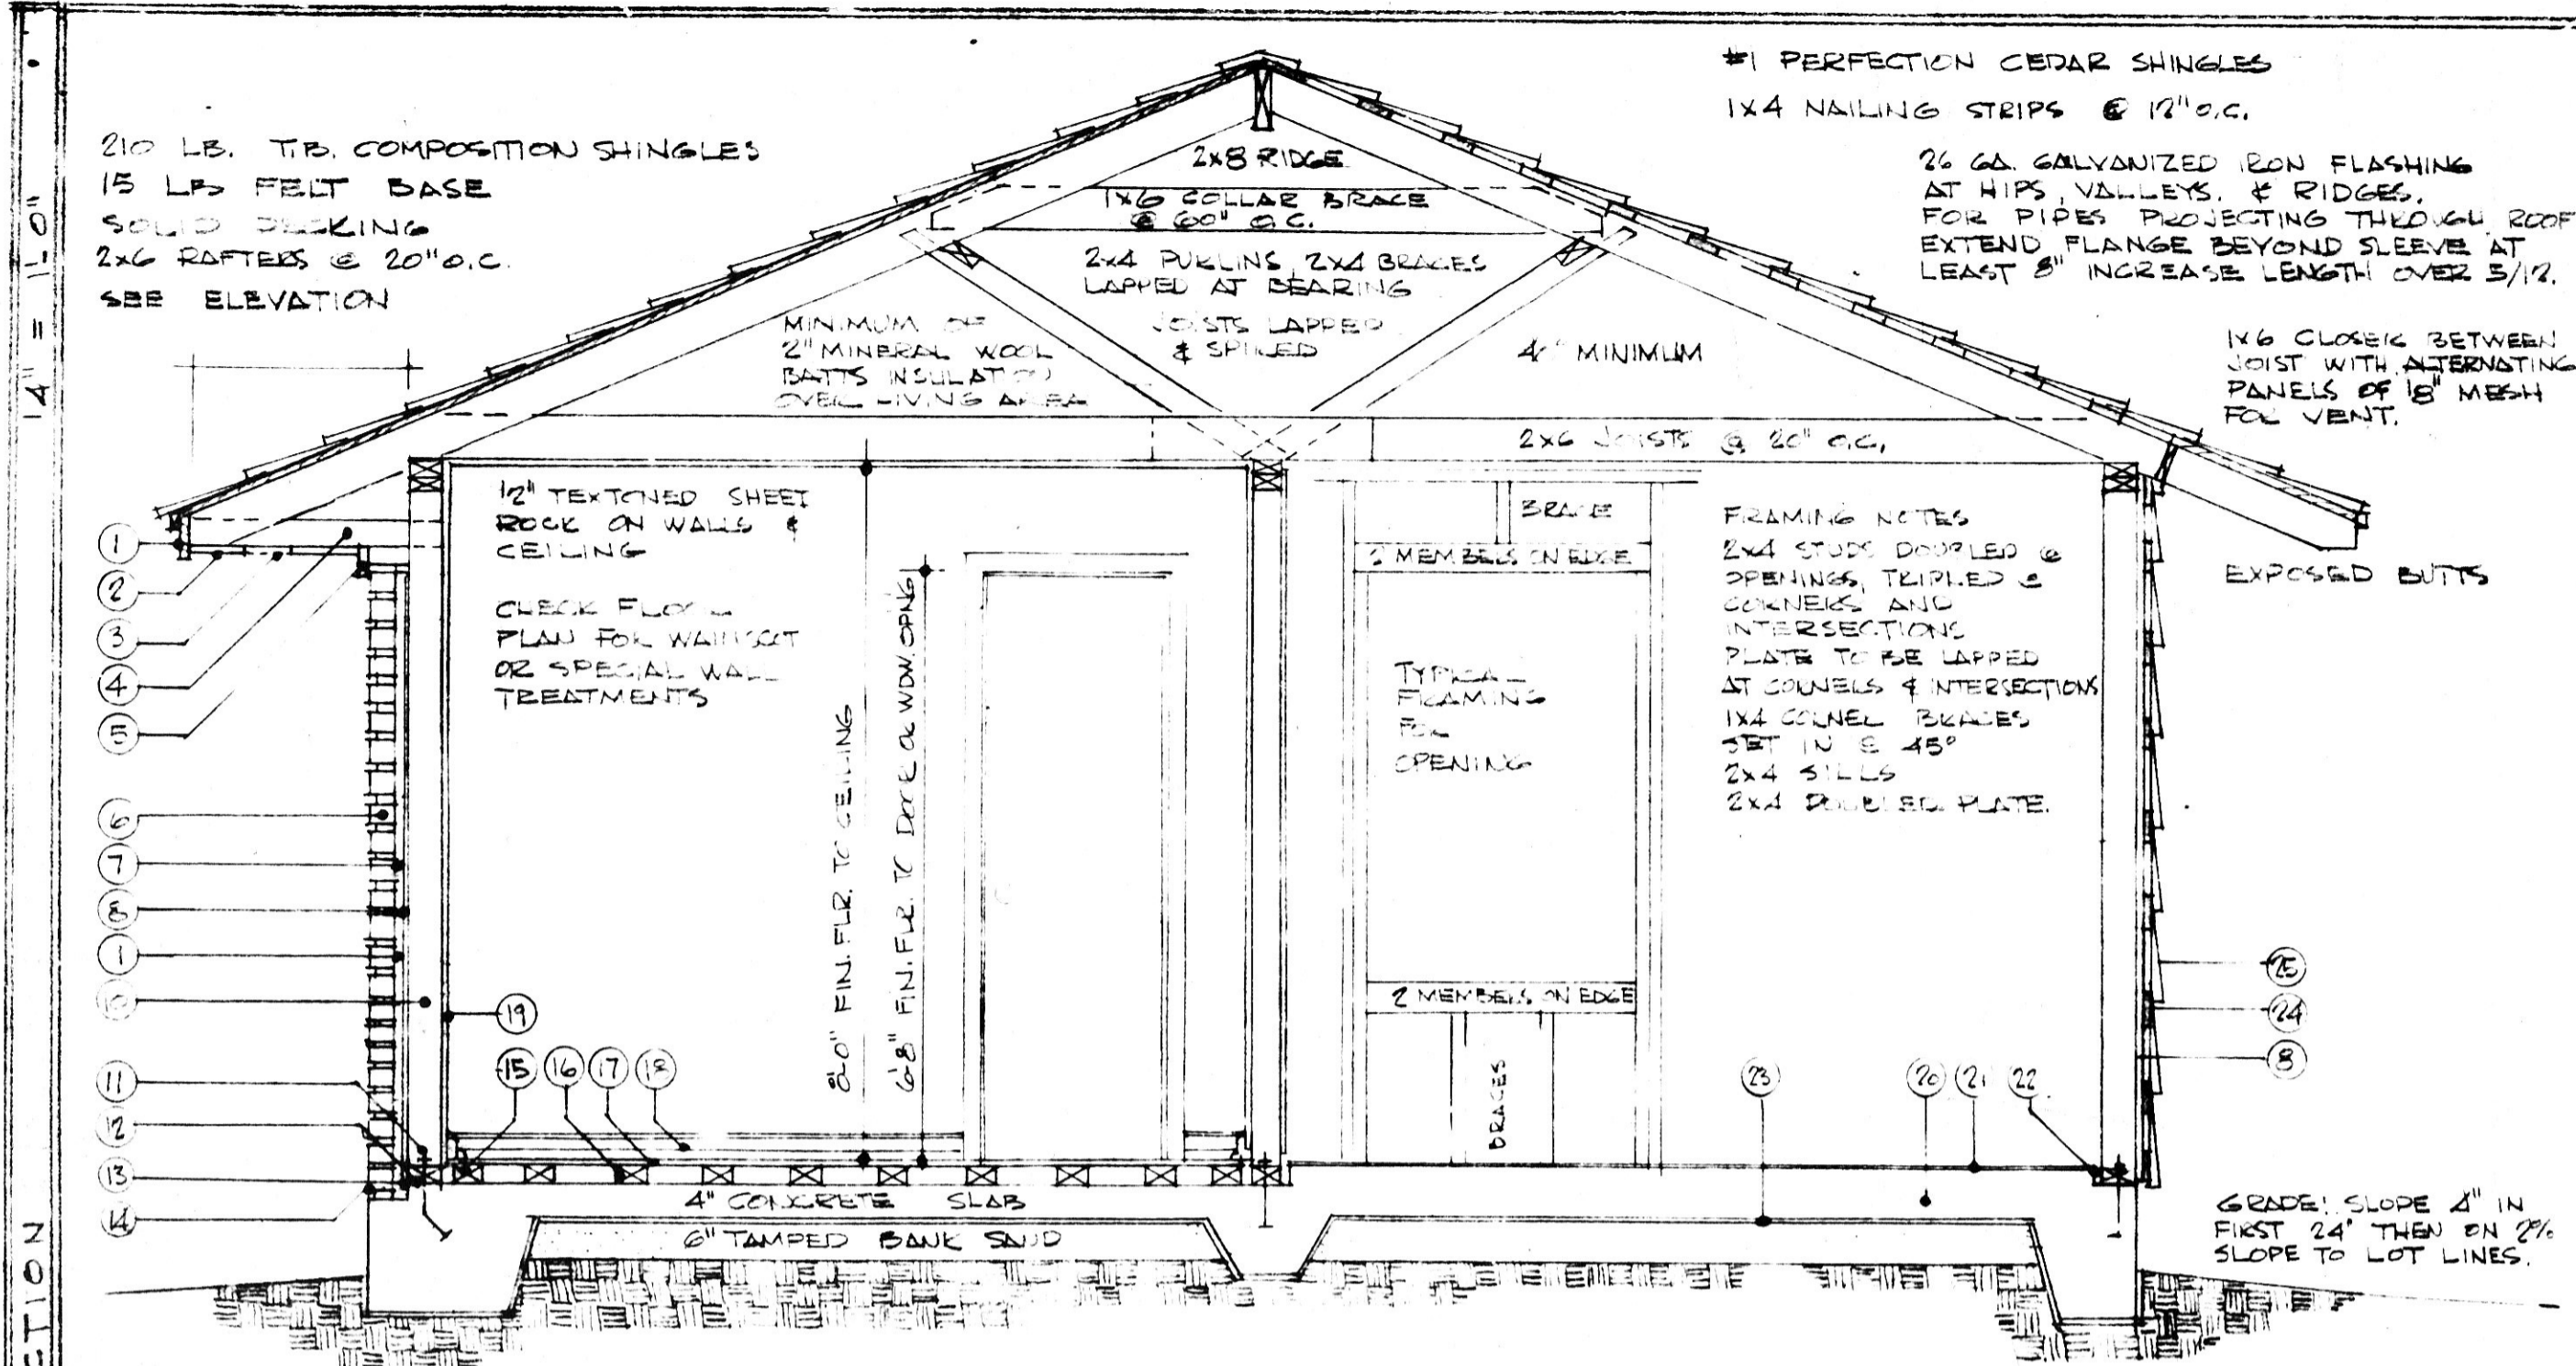 210 LB. T.B. COMPOSITION SHINGLES
15 LB FELT BASE
SOLID DECKING
2x6 RAFTERS @ 20" O.C.
SEE ELEVATION
#1 PERFECTION CEDAR SHINGLES
1x4 NAILING STRIPS @ 12" O.C.
26 GA. GALVANIZED IRON FLASHING
AT HIPS, VALLEYS, & RIDGES.
FOR PIPES PROJECTING THROUGH ROOF
EXTEND FLANGE BEYOND SLEEVE AT
LEAST 8" INCREASE LENGTH OVER 5/12.
1x6 CLOSER BETWEEN
JOIST WITH ALTERNATING
PANELS OF 1/8" MESH
FOR VENT.
2x8 RIDGE
1x6 COLLAR BRACE
@ 60" O.C.
2x4 PURLINS, 2x4 BRACES
LAPPED AT BEARING
JOISTS LAPPED
& SPIKED
4" MINIMUM
MINIMUM OF
2" MINERAL WOOL
BATTS INSULATION
OVER LIVING AREA
2x6 JOISTS @ 20" O.C.
1/2" TEXTONED SHEET
ROCK ON WALLS &
CEILING
CHECK FLOOR
PLAN FOR WAINSCOT
OR SPECIAL WALL
TREATMENTS
8'-0" FIN. FLR. TO CEILING
6'-8" FIN. FLR. TO DOOR OR WDW. OPNG
BRACE
2 MEMBERS ON EDGE
TYPICAL
FRAMING
FOR
OPENING
2 MEMBERS ON EDGE
BRACES
FRAMING NOTES
2x4 STUDS DOUBLED @
OPENINGS, TRIPLED @
CORNERS AND
INTERSECTIONS
PLATE TO BE LAPPED
AT CORNERS & INTERSECTIONS
1x4 CORNER BRACES
SET IN @ 45°
2x4 SILLS
2x4 DOUBLED PLATE.
EXPOSED BUTTS
1
2
3
4
5
6
7
8
1
10
11
12
13
14
19
15 16 17 18
23 20 21 22
25
24
8
4" CONCRETE SLAB
6" TAMPED BANK SAND
GRADE: SLOPE 4" IN
FIRST 24" THEN ON 2%
SLOPE TO LOT LINES.
1/4" = 1'-0"
CTION